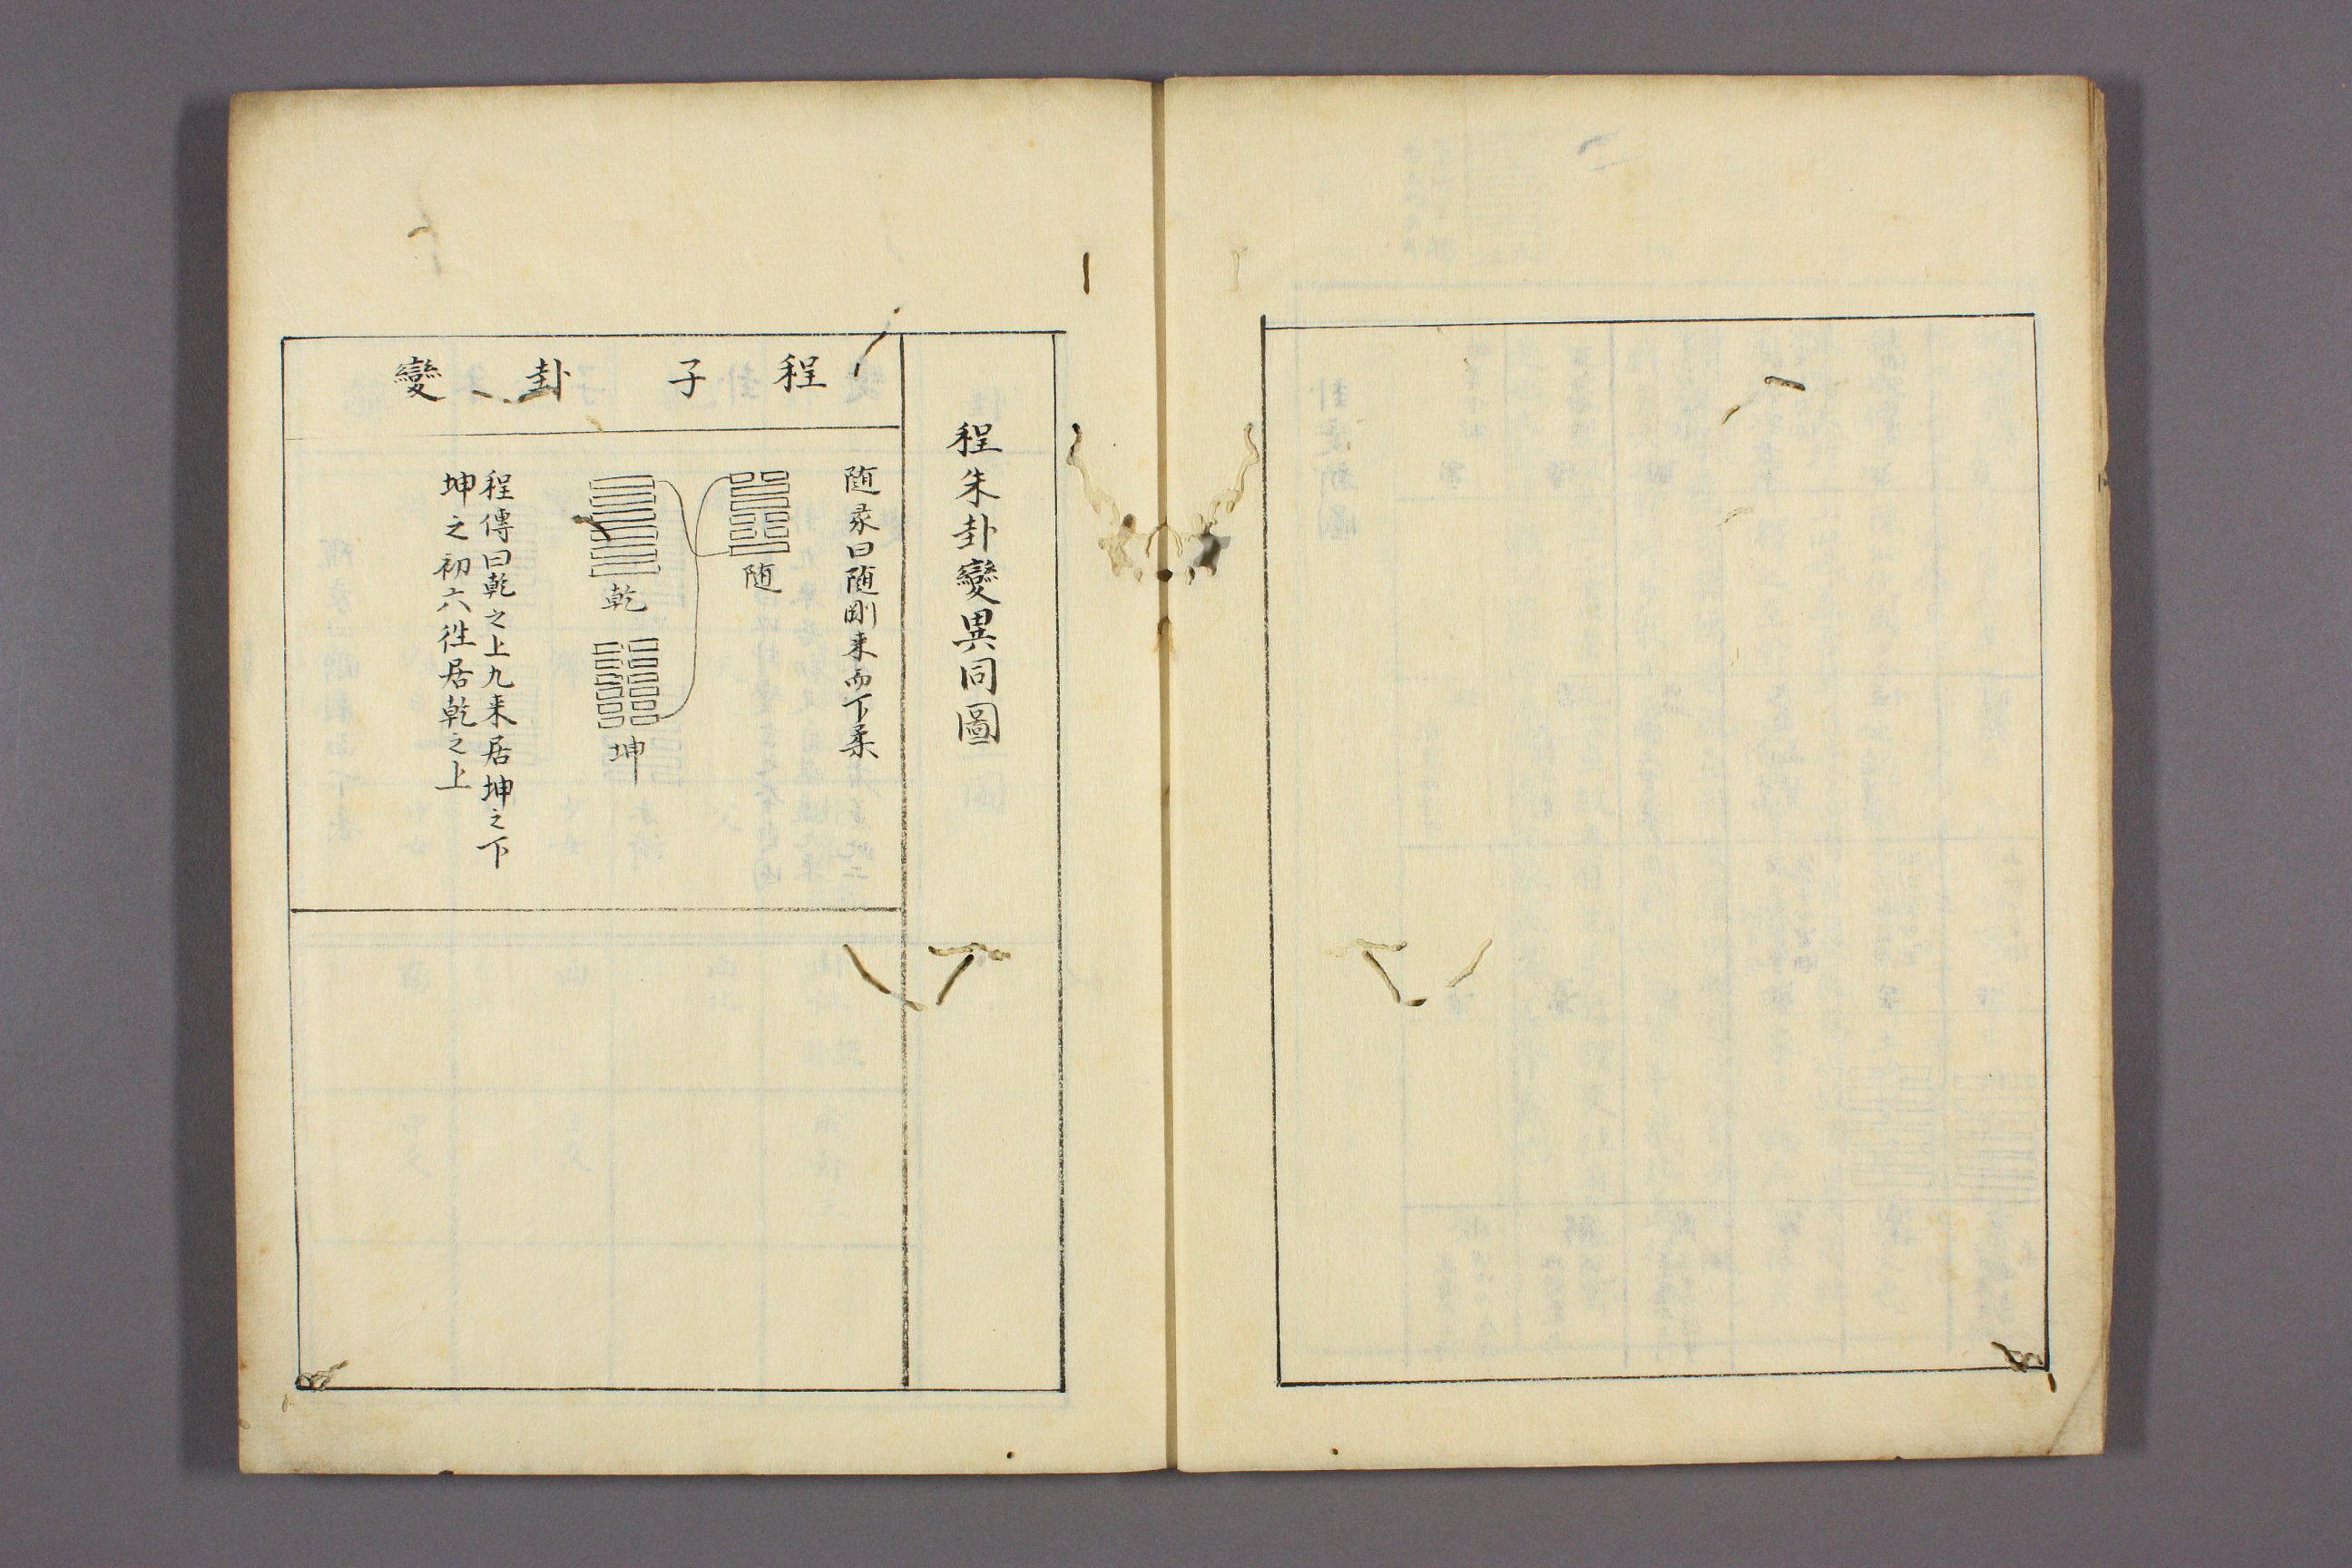 程朱卦變異同圖
程子卦變
随彖曰随剛来而下柔
随
乾
坤
程傳曰乾之上九来居坤之下
坤之初六徃居乾之上